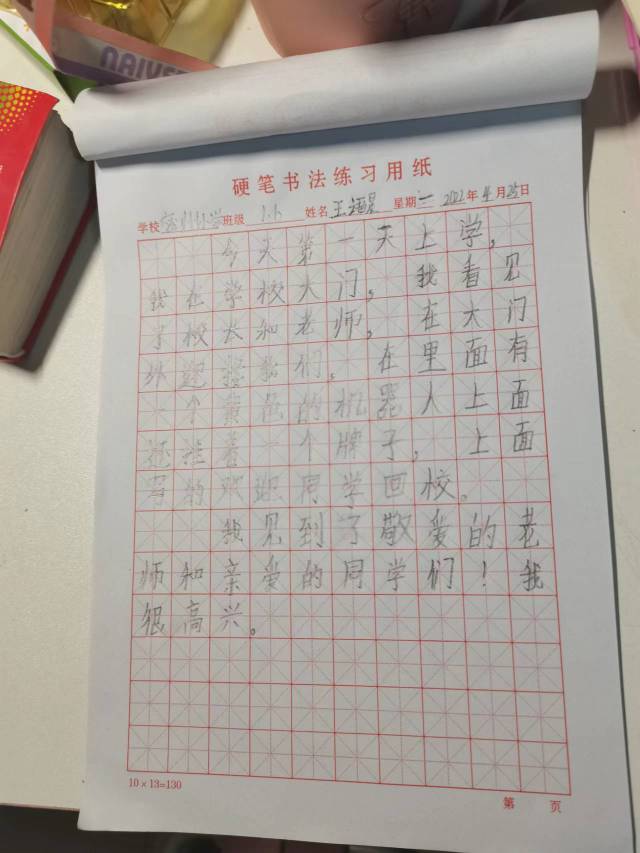 NAIVE
硬笔书法练习用纸
学校 小学 班级 1.6 姓名 王 星期一 2022年4月25日
今天第一天上学，
我在学校大门，我看见
了校长和老师，在大门
外迎接我们。在里面有
一个黄色的机器人上面
还挂着一个牌子，上面
写的欢迎同学回校。
我见到了敬爱的老
师和亲爱的同学们！我
很高兴。
10×13=130
第 页